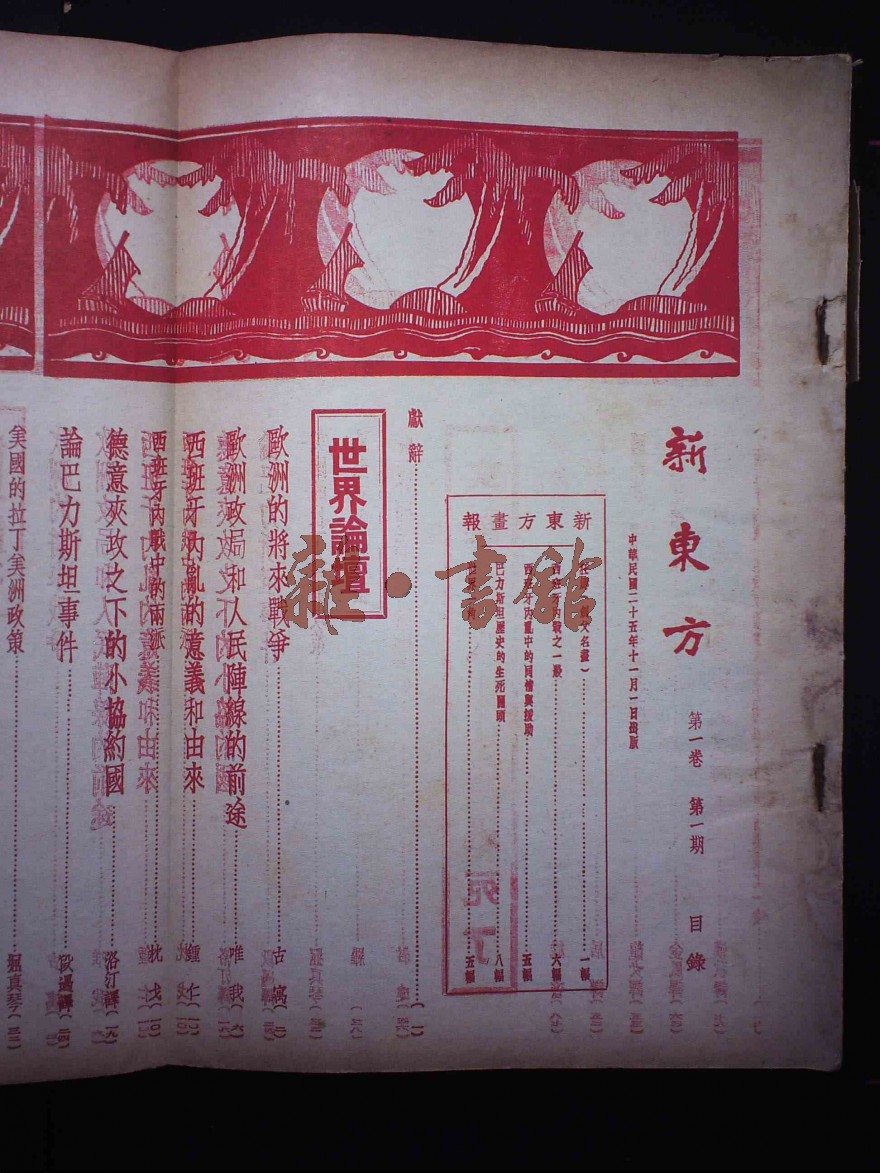 新東方
第一卷 第一期 目錄
中華民國二十五年十一月一日出版
新東方畫報
一幅
之一般 六幅
西班牙內亂中的同情與援助 五幅
巴力斯坦歷史的生死關頭 八幅
五幅
獻辭 (一)
世界論壇
歐洲的將來戰爭 古寓 (二)
歐洲政局和人民陣線的前途 唯我 (六)
西班牙內亂的意義和由來 鍾仁
西班牙內戰中的兩派 枕戈 (一〇)
德意夾攻之下的小協約國 洛汀譯 (一九)
論巴力斯坦事件
美國的拉丁美洲政策 張真琴
雜·書館